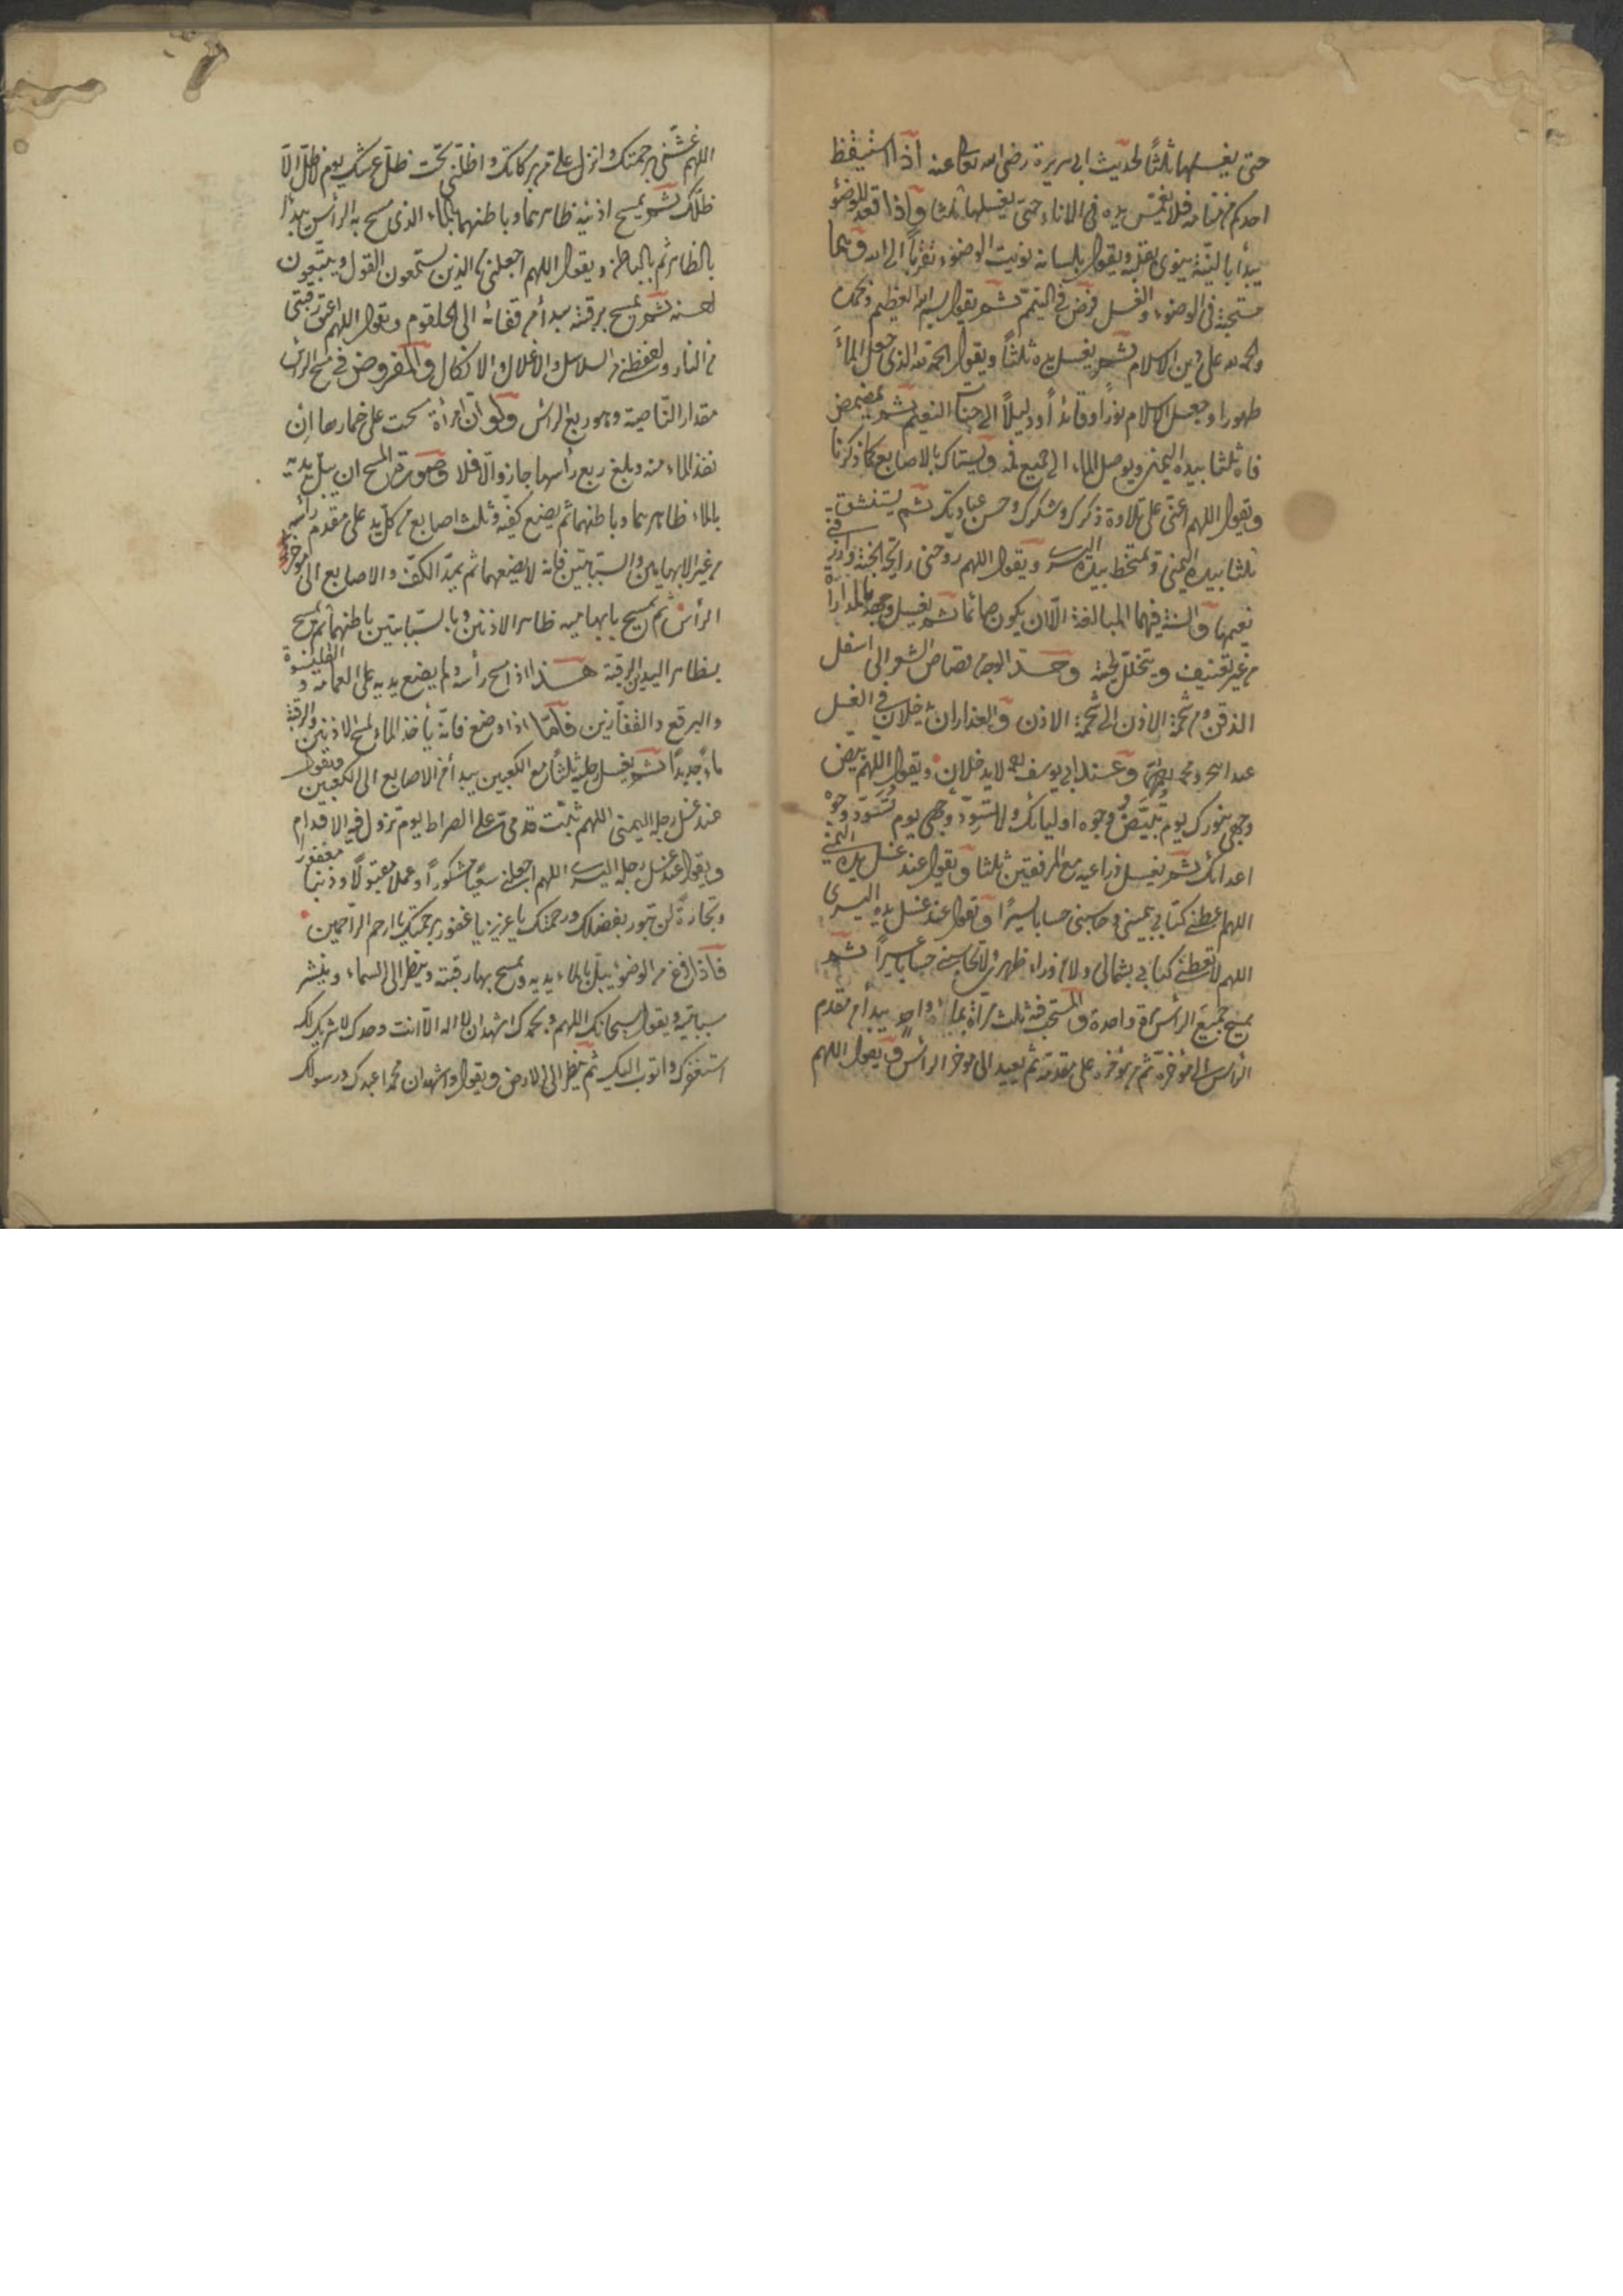 حتى يغسلها ثلثًا لحديث ابى هريرة رضى الله تعالى عنه اذا استيقظ
احدكم من منامه فلا يغمس يده فى الاناء حتى يغسلها ثلثا واذا قعد للوضؤ
يبدأ بالنية ينوى بقلبه ويقول بلسانه نويت الوضوء تقربا الى الله وهما
مستحبة فى الوضوء والغسل فرض فى التيمّم ثم يقول بسم الله العظيم وبحمده
والحمد لله على دين الاسلام ثم يغسل يده ثلثًا ويقول الحمد لله الذى جعل الماءَ
طهورا وجعل الاسلام نورًا وقائدًا ودليلًا الى جناتك النعيم ثم يمضمض
فاه ثلثا بيده اليمنى ويوصل الماء الى جميع فمه ويستاك بالاصابع كما ذكرنا
ويقول اللهم اعنّى على تلاوة ذكرك وشكرك وحسن عبادتك ثم يستنشق
ثلثا بيده اليمنى ويمتخط بيده اليسرى ويقول اللهم روحنى رايحة الجنة وارزقنى
نعيمها والسنة فيهما المبالغة الّا ان يكون صائما ثم يغسل وجهه بالمدارا
من غير تعنيف ويتخلل لحيته وحد الوجه من قصاص الشعر الى اسفل
الذقن ومن شحمة الاذن الى شحمة الاذن والعذاران يدخلان فى الغسل
عند ابى ح ومحمد وعند ابى يوسف لا يدخلان ويقول اللهم بيّض
وجهى بنورك يوم تَبْيَضُّ وجوه اوليائك ولا تسوّد وجهى يوم تَسْوَدّ وجوه
اعدائك ثم يغسل ذراعيه مع المرفقين ثلثا ويقول عند غسل يده اليمنى
اللهم اعطنى كتابى بيمينى وحاسبنى حسابا يسيرًا ويقول عند غسل يده اليسرى
اللهم لا تعطنى كتابى بشمالى ولا من وراء ظهرى ولا تحاسبنى حسابا عسيرًا ثم
يمسح جميع الرأس مرة واحدة والمستحب فيه ثلث مراة بماء واحد يبدأ من مقدم
الرأس الى مؤخره ثم من مؤخره على مقدمه ثم يعيد الى مؤخر الرأس ويقول اللهم
اللهم غشّنى برحمتك وانزل علىّ من بركاتك واظلّنى تحت ظلّ عرشك يوم لا ظلّ الّا
ظلّك ثم يمسح اذنيه ظاهرهما وباطنهما بالماء الذى مسح به الرأس يبدأ
بالظاهر ثم بالباطن ويقول اللهم اجعلنى من الذين يستمعون القول ويتّبعون
احسنه ثم يمسح برقبته يبدأ من قفائه الى الحلقوم ويقول اللهم اعتق رقبتى
من النار واحفظنى من السلاسل والاغلال والانكال والمفروض فى مسح الرأس
مقدار النّاصية وهو ربع الرأس ولو انّ امرأة مسحت على خمارها ان
نفذ الماء منه وبلغ ربع رأسها جاز والّا فلا وصورة المسح ان يبلّ يديه
بالماء ظاهرهما وباطنهما ثم يضع كفّيه وثلث اصابع من كلّ يد على مقدم رأسه
من غير الابهامين والسبّابتين فانه لا يضعهما ثم يمدّ الكفّ والاصابع الى مؤخر
الرأس ثم يمسح بابهاميه ظاهر الاذنين وبالسبّابتين باطنهما ثم يمسح
بظاهر اليدين الرقبة هذا اذا مسح رأسه ولم يضع يديه على العمامة والقلنسوة
والبرقع والقفّازين فامّا اذا وضع فانّه يأخذ الماء لمسح الاذنين والرقبة
ماءً جديدًا ثم يغسل رجليه ثلثًا مع الكعبين يبدأ من الاصابع الى الكعبين ويقول
عند غسل رجله اليمنى اللهم ثبّت قدمىّ على الصراط يوم تزول فيه الاقدام
ويقول عند غسل رجله اليسرى اللهم اجعل لى سعيًا مشكورًا وعملا مقبولًا وذنبا مغفورا
وتجارةً لن تبور بفضلك ورحمتك يا عزيز يا غفور برحمتك يا ارحم الرّاحمين
فاذا فرغ من الوضوء يبلّ بالماء يديه ويمسح بهما رقبته وينظر الى السماء وينشر
سبابتيه ويقول سبحانك اللهم وبحمدك اشهد ان لا اله الّا انت وحدك لا شريك لك
استغفرك واتوب اليك ثم ينظر الى الارض ويقول واشهد ان محمدا عبدك ورسولك